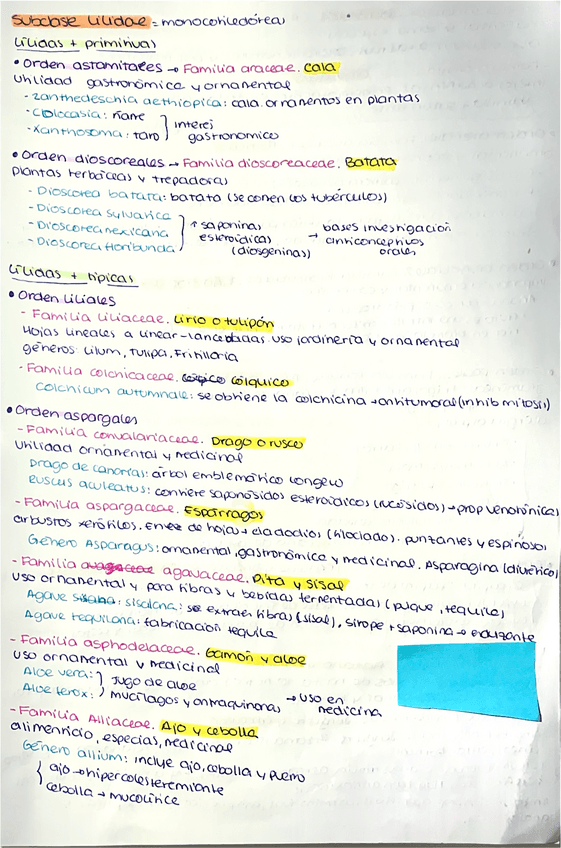 Subclase Liliidae = monocotiledórea
Liliidas + primitivas
• Orden astomitales → Familia araceae. cala
Utilidad gastronómica y ornamental
- Zanthedeschia aethiopica: cala. ornamentos en plantas
- Colocasia: ñame
- Xanthosoma: taro } interés gastronomico
• Orden dioscoreales → Familia dioscoreaceae. Batata
plantas herbáceas y trepadoras
- Dioscorea batata: batata (se comen los tubérculos)
- Dioscorea sylvatica
- Dioscorea mexicana
- Dioscorea floribunda } ↑ saponinas esteroidicas (diosgeninas) → bases investigación anticonceptivos orales
Liliidas + típicas
• Orden Liliales
- Familia liliaceae. Lirio o tulipán
Hojas lineales a linear-lanceoladas. uso jardinería y ornamental
géneros: Lilum, Tulipa, Fritillaria
- Familia colchicaceae. cólquico
Colchicum autumnale: se obtiene la colchicina → antitumoral (inhib mitosis)
• Orden aspargales
- Familia convalariaceae. Drago o rusco
Utilidad ornamental y medicinal
Drago de canarias: árbol emblemático longevo
Ruscus aculeatus: contiene saponósidos esteroídicos (ruscósidos) → prop venotónicas
- Familia aspargaceae. Espárragos
arbustos xerófilos. En vez de hojas → cladodios (filoclado). punzantes y espinosos
Género Asparagus: ornamental, gastronómica y medicinal. Asparagina (diurético)
- Familia agavaceae. Pita y Sisal
uso ornamental y para fibras y bebidas fermentadas (pulque, tequila)
Agave sisalana: se extraen fibras (sisal), sirope + saponina → edulzante
Agave tequilana: fabricación tequila
- Familia asphodelaceae. Gamón y aloe
uso ornamental y medicinal
Aloe vera:
Aloe ferox: } jugo de aloe mucílagos y antraquinonas → uso en medicina
- Familia Alliaceae. Ajo y cebolla
alimenticio, especias, medicinal
Género allium: incluye ajo, cebolla y puerro
{ ajo → hipercolesteremiante
cebolla → mucolítica